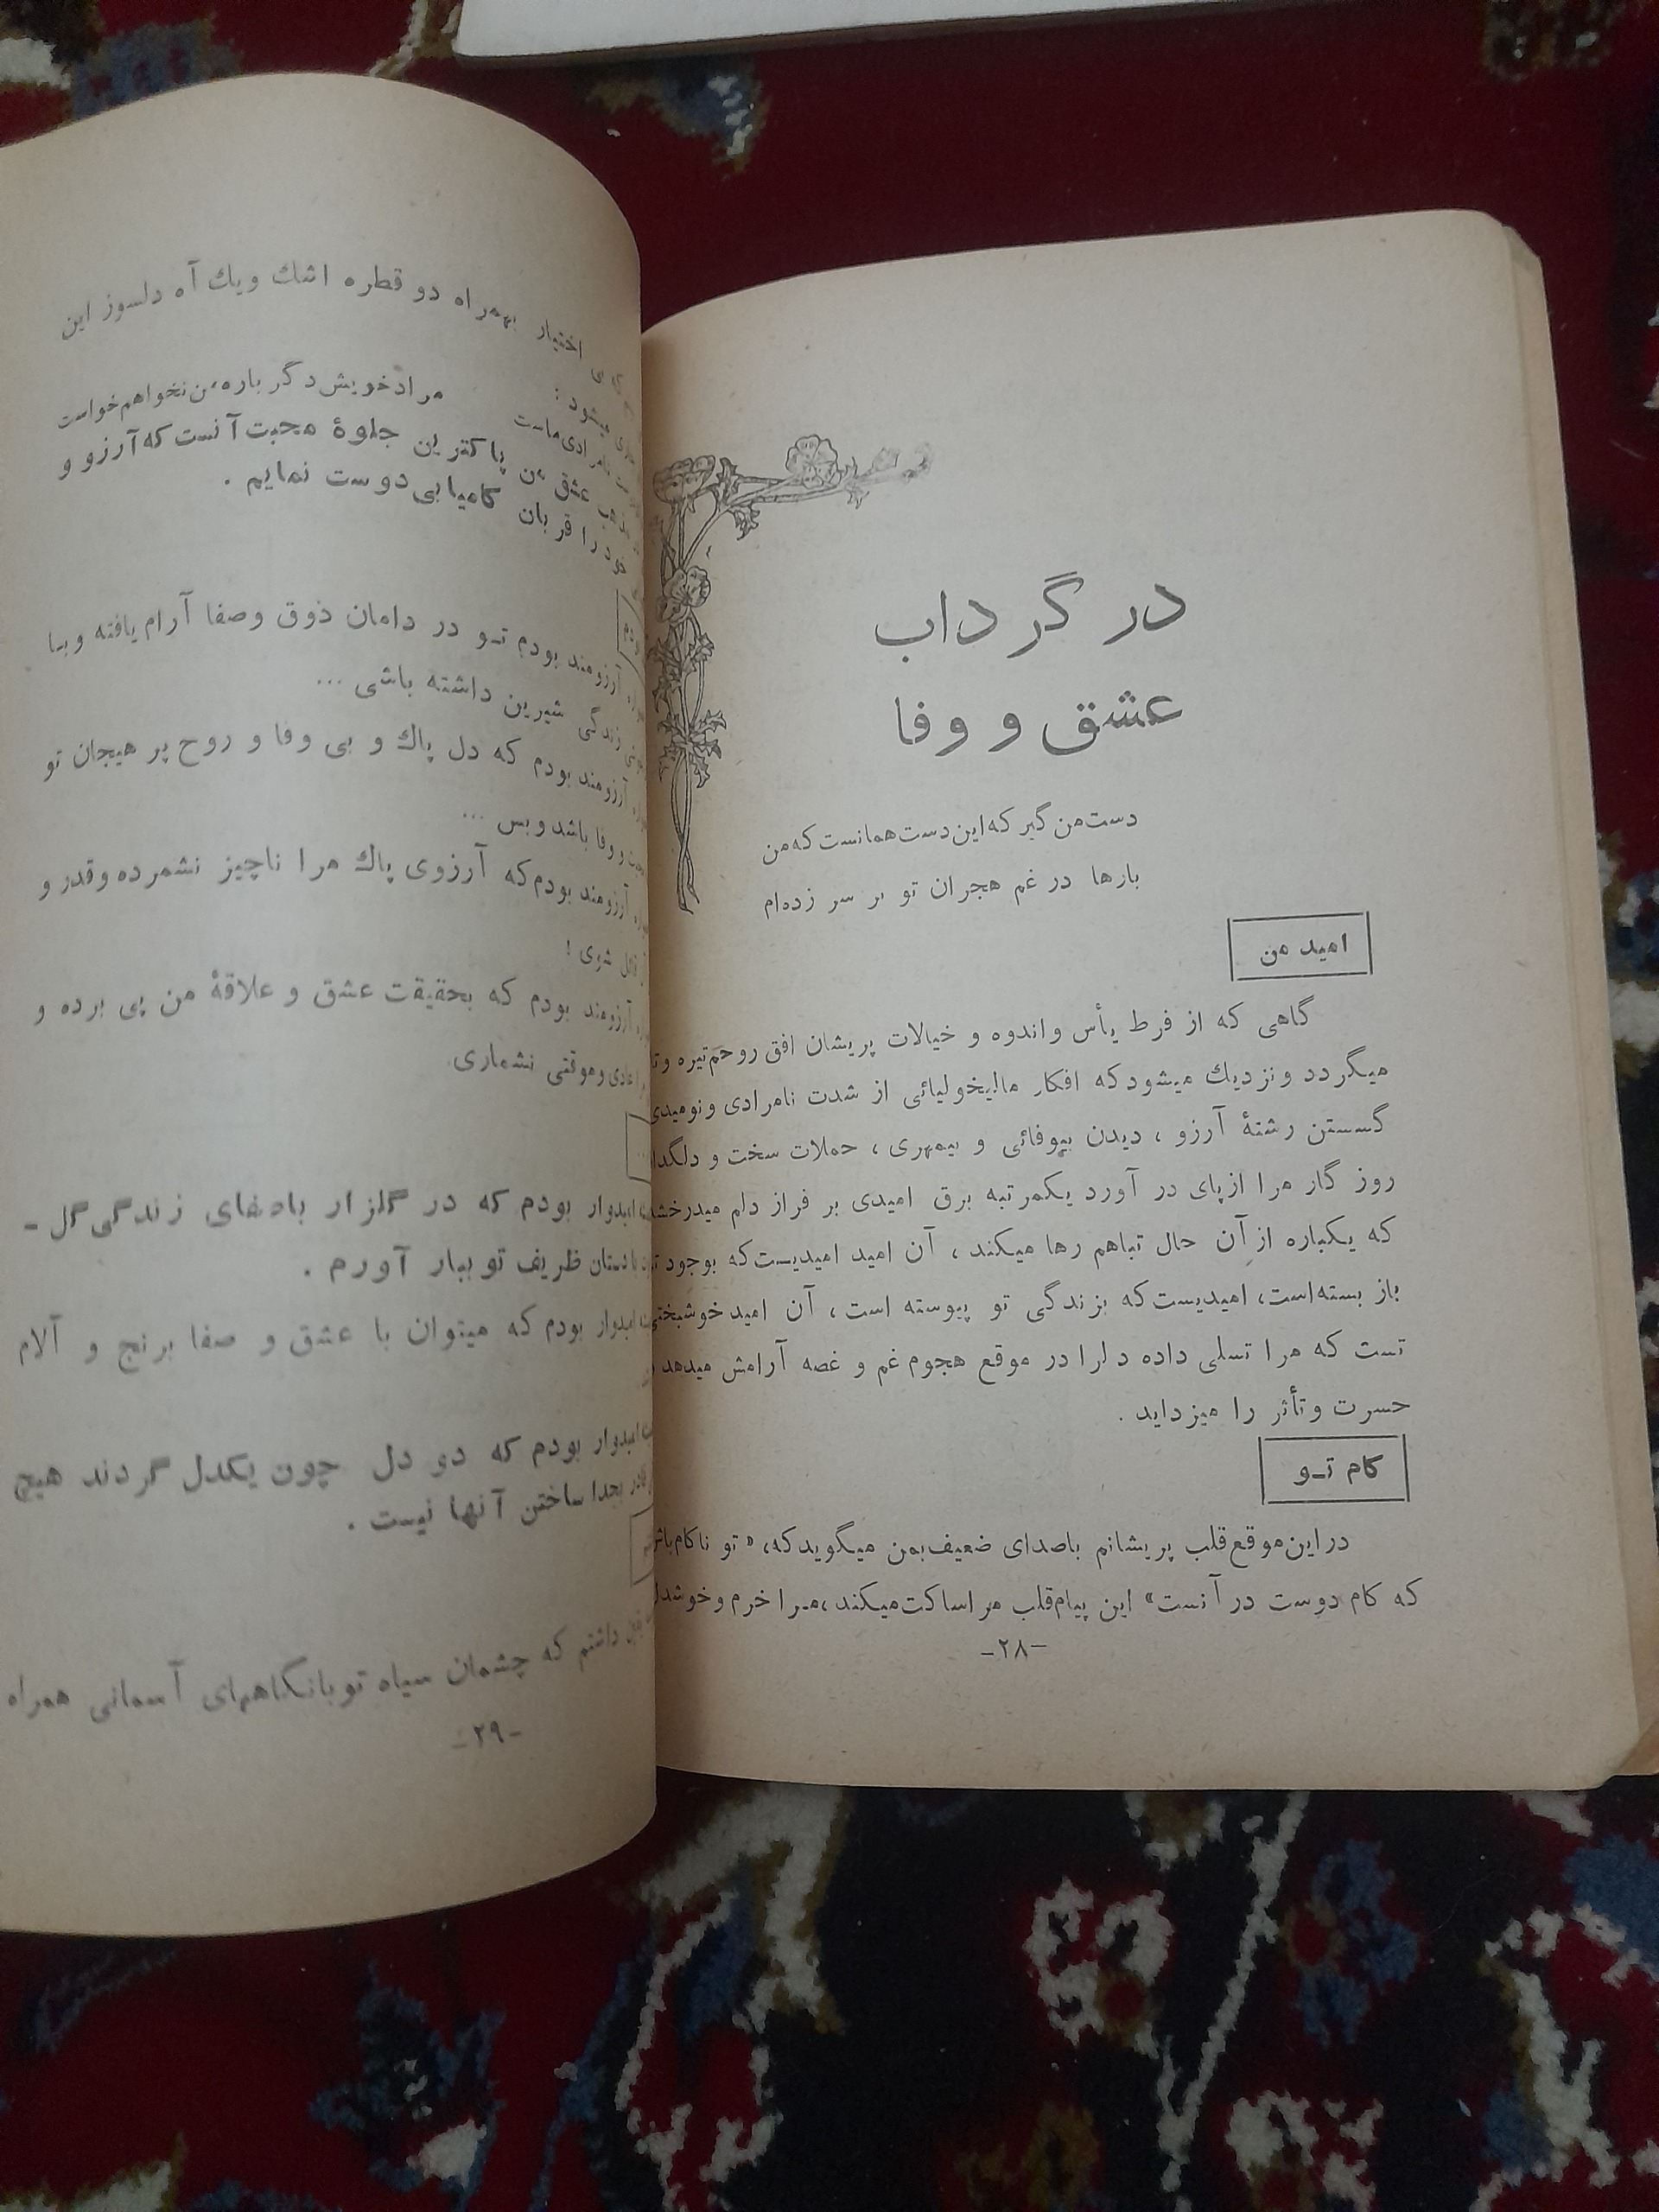 در گرداب
عشق و وفا
دست من گیر که این دست همانست که من
بارها در غم هجران تو بر سر زده‌ام
امید من
گاهی که از فرط یأس و اندوه و خیالات پریشان افق روحم تیره وتا
میگردد ونزدیك میشود که افکار مالیخولیائی از شدت نامرادی ونومیدی
گسستن رشتهٔ آرزو ، دیدن بیوفائی و بیمهری ، حملات سخت و دلگدا
روز گار مرا ازپای در آورد یکمرتبه برق امیدی بر فراز دلم میدرخشد
که یکباره از آن حال تباهم رها میکند ، آن امید امیدیست‌که بوجود تو
باز بسته‌است، امیدیست‌که بزندگی تو پیوسته است ، آن امید خوشبختی
تست که مرا تسلی داده دلرا در موقع هجوم غم و غصه آرامش میدهد
حسرت وتأثر را میزداید .
کام تـو
در این‌موقع‌قلب پریشانم باصدای ضعیف‌بمن میگویدکه، « تو ناکام‌باش
که کام دوست در آنست» این پیام‌قلب مراساکت‌میکند ،مـرا خرم وخوشدل
-۲۸-
اختیار بهمراه دو قطره اشك ویك آه دلسوز این
میشود :
مرادخویش‌دگر باره‌من‌نخواهم‌خواست
نامرادی‌ماست
عشق من پاکترین جلوهٔ محبت آنست که‌آرزو و
خود را قربان کامیابی‌دوست نمایم .
آرزومند بودم تـو در دامان ذوق وصفا آرام یافته وبـا
زندگی شیرین داشته باشی ...
آرزومند بودم که دل پاك و بی وفا و روح پر هیجان تو
و وفا باشد و بس ...
آرزومند بودم‌که آرزوی پاك مرا ناچیز نشمرده وقدر و
شوی !
آرزومند بودم که بحقیقت عشق و علاقهٔ من پی برده و
عادی وموقتی نشماری
امیدوار بودم که در گلزار باصفای زندگی گل -
بادستان ظریف تو ببار آورم .
امیدوار بودم که میتوان با عشق و صفا برنج و آلام
امیدوار بودم که دو دل چون یکدل گردند هیچ
بجدا ساختن آنها نیست .
داشتم که چشمان سیاه توبانگاههای آسمانی همراه
-۲۹-